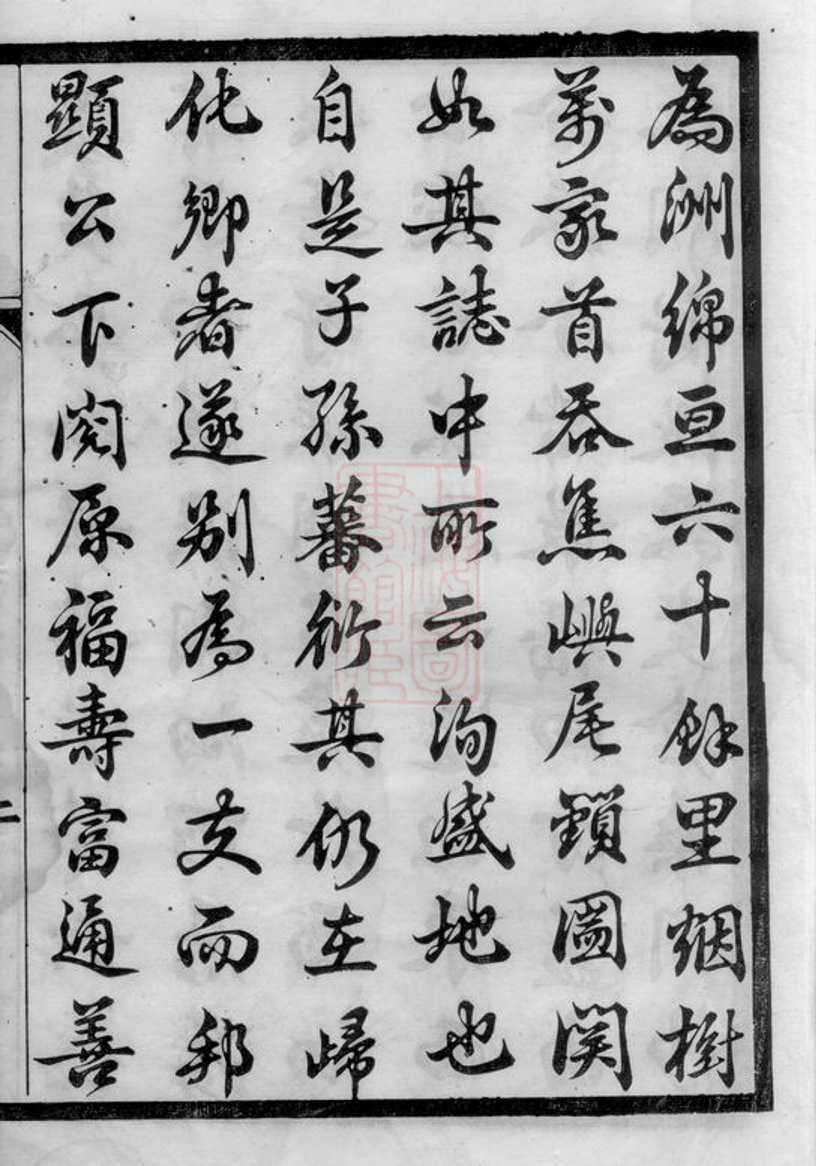 為洲綿亘六十餘里烟樹
萬家首吞焦嶼尾鎖圌関
如其誌中所云洵盛地也
自是子孫蕃衍其仍在歸
化鄉者遂别為一支而邦
顯公下閱原福壽富通善
二